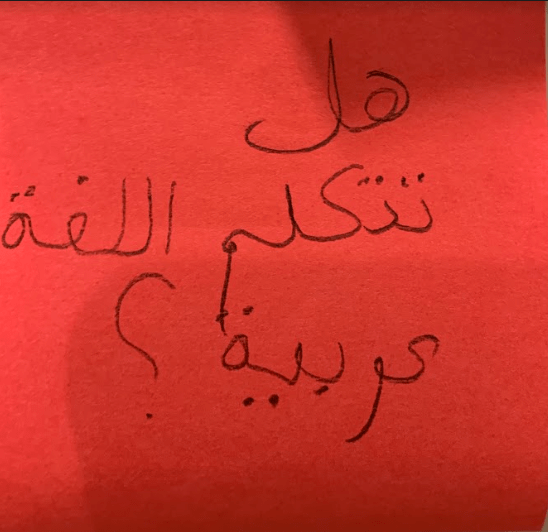 هل
تتكلم اللغة
عربية ؟